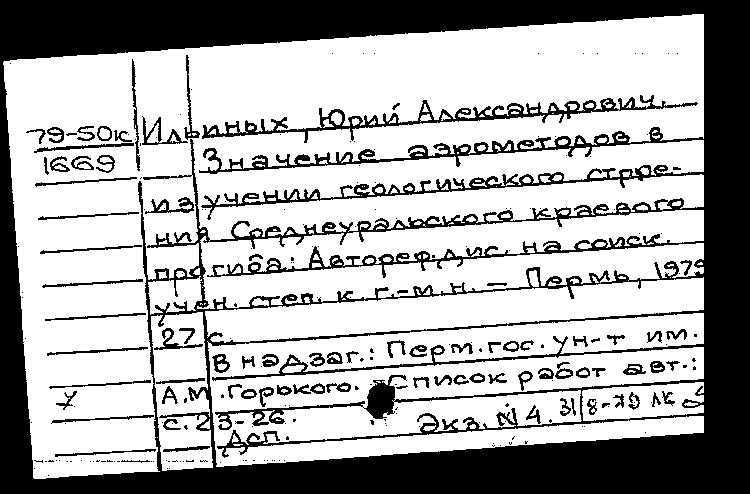 79-50к Ильиных, Юрий Александрович.
1669 Значение аэрометодов в
изучении геологического строе-
ния Среднеуральского краевого
прогиба: Автореф. дис. на соиск.
учен. степ. к. г.-м. н. – Пермь, 1979
27 с.
В надзаг.: Перм. гос. ун-т им.
У А.М. Горького. Список работ авт.:
с. 23-26.
Дсп. Экз. N 4. 31/8-79 ЛК